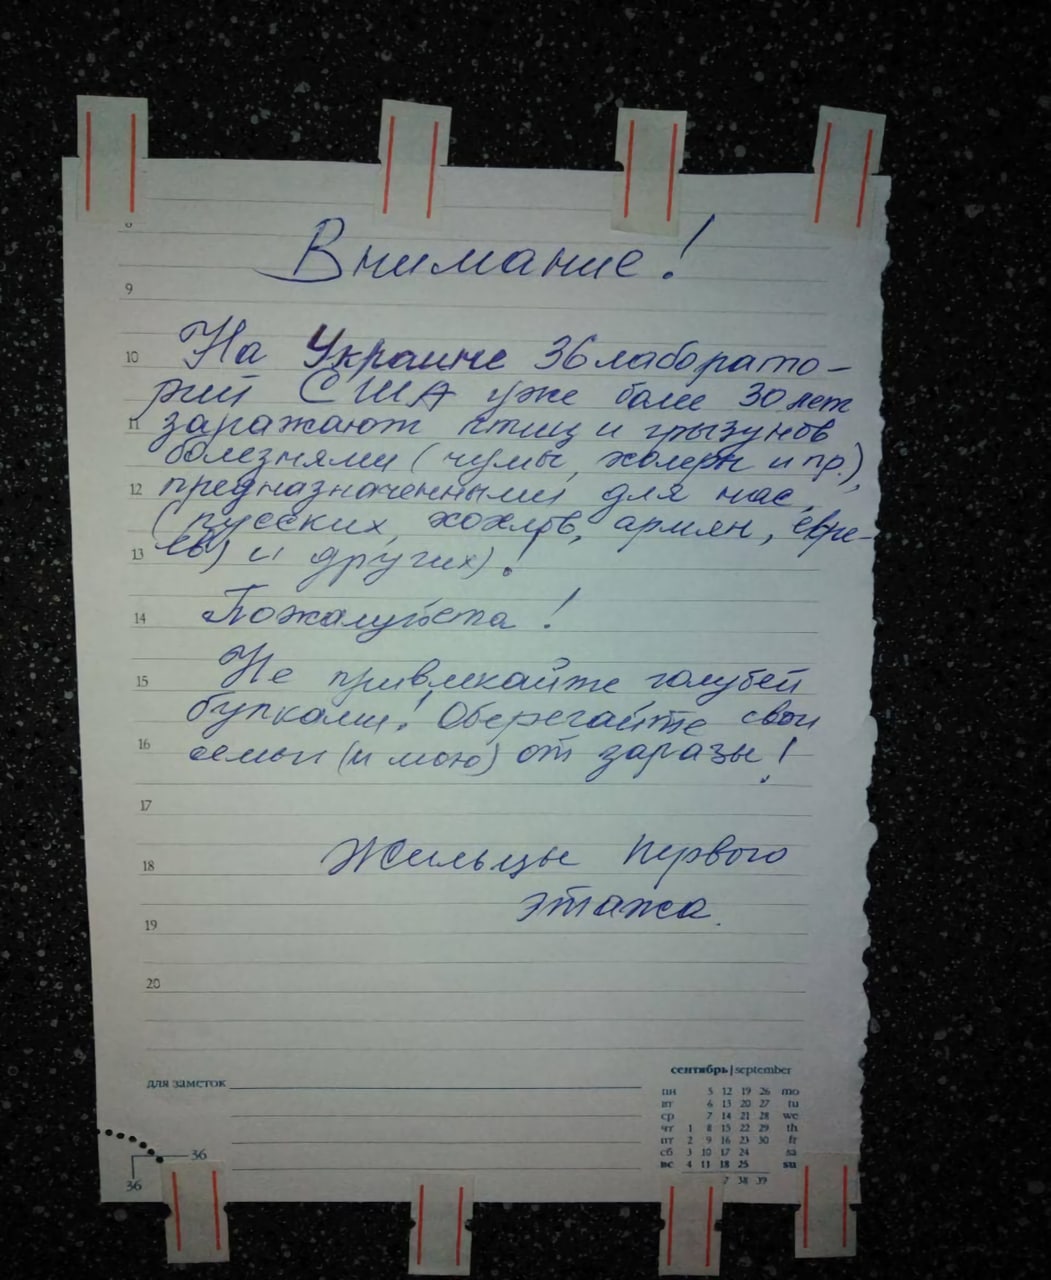 Внимание!
На Украине 36 лаборато-
рий США уже более 30 лет
заражают птиц и грызунов
болезнями (чумы, холеры и пр.),
предназначенными для нас
(русских, хохлов, армян, евре-
ев) и других)!
Пожалуйста!
Не привлекайте голубей
булками! Оберегайте свои
семьи (и мою) от заразы!
Жильцы первого
этажа.
8
9
10
11
12
13
14
15
16
17
18
19
20
для заметок
36
36
сентябрь | september
пн 5 12 19 26 mo
вт 6 13 20 27 tu
ср 7 14 21 28 we
чт 1 8 15 22 29 th
пт 2 9 16 23 30 fr
сб 3 10 17 24 sa
вс 4 11 18 25 su
38 39